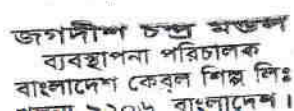 জগদীশ চন্দ্র মন্ডল
ব্যবস্থাপনা পরিচালক
বাংলাদেশ কেবল শিল্প লিঃ
বাংলাদেশ।